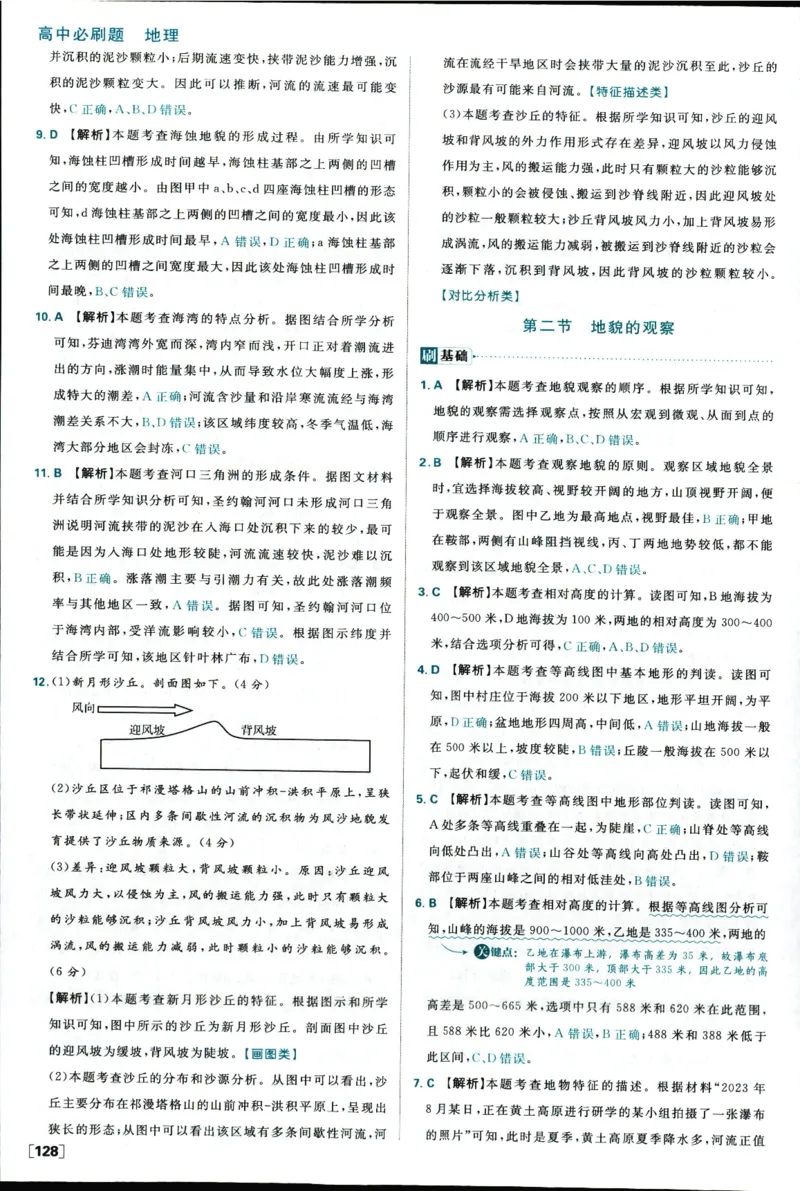 高中必刷题 地理
并沉积的泥沙颗粒小;后期流速变快,挟带泥沙能力增强,沉
积的泥沙颗粒变大。因此可以推断,河流的流速最可能变
快,C正确,A、B、D错误。
9.D 【解析】本题考查海蚀地貌的形成过程。由所学知识可
知,海蚀柱凹槽形成时间越早,海蚀柱基部之上两侧的凹槽
之间的宽度越小。由图甲中a、b、c、d四座海蚀柱凹槽的形态
可知,d海蚀柱基部之上两侧的凹槽之间的宽度最小,因此该
处海蚀柱凹槽形成时间最早,A错误,D正确;a海蚀柱基部
之上两侧的凹槽之间宽度最大,因此该处海蚀柱凹槽形成时
间最晚,B、C错误。
10.A 【解析】本题考查海湾的特点分析。据图结合所学分析
可知,芬迪湾湾外宽而深,湾内窄而浅,开口正对着潮流进
出的方向,涨潮时能量集中,从而导致水位大幅度上涨,形
成特大的潮差,A正确;河流含沙量和沿岸寒流流经与海湾
潮差关系不大,B、D错误;该区域纬度较高,冬季气温低,海
湾大部分地区会封冻,C错误。
11.B 【解析】本题考查河口三角洲的形成条件。据图文材料
并结合所学知识分析可知,圣约翰河河口未形成河口三角
洲说明河流挟带的泥沙在入海口处沉积下来的较少,最可
能是因为入海口处地形较陡,河流流速较快,泥沙难以沉
积,B正确。涨落潮主要与引潮力有关,故此处涨落潮频
率与其他地区一致,A错误。据图可知,圣约翰河河口位
于海湾内部,受洋流影响较小,C错误。根据图示纬度并
结合所学可知,该地区针叶林广布,D错误。
12.(1)新月形沙丘。剖面图如下。(4分)
风向
迎风坡 背风坡
(2)沙丘区位于祁漫塔格山的山前冲积-洪积平原上,呈狭
长带状延伸;区内多条间歇性河流的沉积物为风沙地貌发
育提供了沙丘物质来源。(4分)
(3)差异:迎风坡颗粒大,背风坡颗粒小。原因:沙丘迎风
坡风力大,以侵蚀为主,风的搬运能力强,此时只有颗粒大
的沙粒能够沉积;沙丘背风坡风力小,加上背风坡易形成
涡流,风的搬运能力减弱,此时颗粒小的沙粒能够沉积。
(6分)
【解析】(1)本题考查新月形沙丘的特征。根据图示和所学
知识可知,图中所示的沙丘为新月形沙丘。剖面图中沙丘
的迎风坡为缓坡,背风坡为陡坡。【画图类】
(2)本题考查沙丘的分布和沙源分析。从图中可以看出,沙
丘主要分布在祁漫塔格山的山前冲积-洪积平原上,呈现出
狭长的形态;从图中可以看出该区域有多条间歇性河流,河
[128]
流在流经干旱地区时会挟带大量的泥沙沉积至此,沙丘的
沙源最有可能来自河流。【特征描述类】
(3)本题考查沙丘的特征。根据所学知识可知,沙丘的迎风
坡和背风坡的外力作用形式存在差异,迎风坡以风力侵蚀
作用为主,风的搬运能力强,此时只有颗粒大的沙粒能够沉
积,颗粒小的会被侵蚀、搬运到沙脊线附近,因此迎风坡处
的沙粒一般颗粒较大;沙丘背风坡风力小,加上背风坡易形
成涡流,风的搬运能力减弱,被搬运到沙脊线附近的沙粒会
逐渐下落,沉积到背风坡,因此背风坡的沙粒颗粒较小。
【对比分析类】
第二节 地貌的观察
刷基础
1.A 【解析】本题考查地貌观察的顺序。根据所学知识可知,
地貌的观察需选择观察点,按照从宏观到微观、从面到点的
顺序进行观察,A正确,B、C、D错误。
2.B 【解析】本题考查观察地貌的原则。观察区域地貌全景
时,宜选择海拔较高、视野较开阔的地方,山顶视野开阔,便
于观察全景。图中乙地为最高地点,视野最佳,B正确;甲地
在鞍部,两侧有山峰阻挡视线,丙、丁两地地势较低,都不能
观察到该区域地貌全景,A、C、D错误。
3.C 【解析】本题考查相对高度的计算。读图可知,B地海拔为
400～500米,D地海拔为100米,两地的相对高度为300～400
米,结合选项分析可得,C正确,A、B、D错误。
4.D 【解析】本题考查等高线图中基本地形的判读。读图可
知,图中村庄位于海拔200米以下地区,地形平坦开阔,为平
原,D正确;盆地地形四周高,中间低,A错误;山地海拔一般
在500米以上,坡度较陡,B错误;丘陵一般海拔在500米以
下,起伏和缓,C错误。
5.C 【解析】本题考查等高线图中地形部位判读。读图可知,
A处多条等高线重叠在一起,为陡崖,C正确;山脊处等高线
向低处凸出,A错误;山谷处等高线向高处凸出,D错误;鞍
部位于两座山峰之间的相对低洼处,B错误。
6.B 【解析】本题考查相对高度的计算。根据等高线图分析可
知,山峰的海拔是900～1000米,乙地是335～400米,两地的
关键点:乙地在瀑布上游,瀑布高差为35米,故瀑布底
部大于300米,顶部大于335米,因此乙地的高
度范围是335～400米
高差是500～665米,选项中只有588米和620米在此范围,
且588米比620米小,A错误,B正确;488米和388米低于
此区间,C、D错误。
7.C 【解析】本题考查地物特征的描述。根据材料“2023年
8月某日,正在黄土高原进行研学的某小组拍摄了一张瀑布
的照片”可知,此时是夏季,黄土高原夏季降水多,河流正值